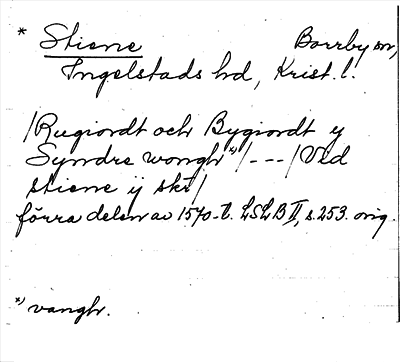 * Stiene Borrby sn,
Ingelstads hd, Krist. l.
/Rugiordt och Bygiordt y
Syndre wongh*)/---/Ved
stiene ij skt/
förra delen av 1570-t. LSLB II, s. 253. orig.
*) vangh.